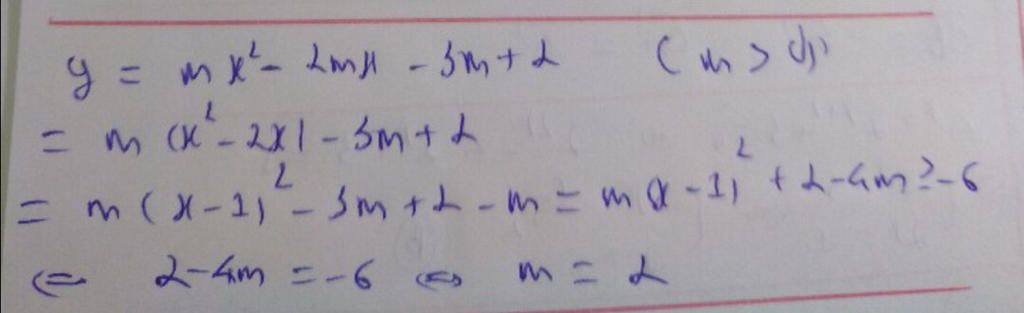 y = mx² - 2mx - 3m + 2 (m > 0)
= m (x² - 2x) - 3m + 2
= m (x - 1)² - 3m + 2 - m = m(x - 1)² + 2 - 4m ≥ -6
⇔ 2 - 4m = -6 ⇔ m = 2